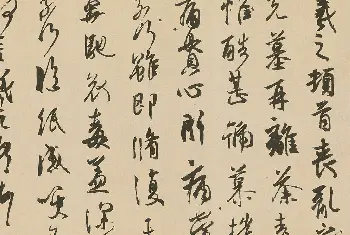 羲之頓首喪亂
先墓再離荼毒
惟酷甚號慕摧
痛貫心肝痛當
奈何雖即脩復未
奔馳哀毒益深
奈何臨紙感哽
何言羲之頓首